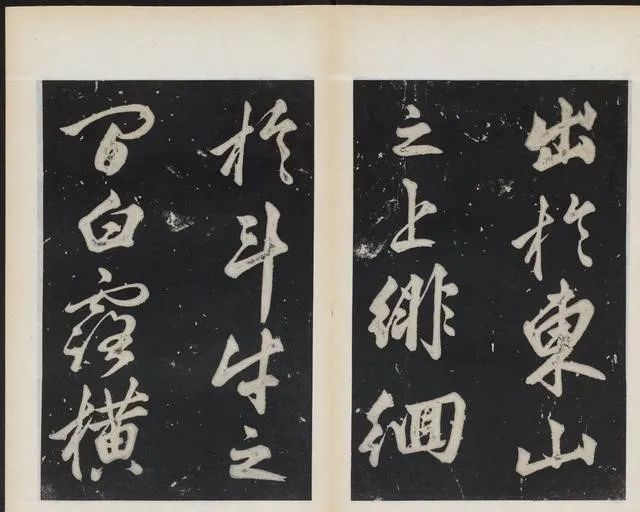 出於東山
之上徘徊
於斗牛之
間白露橫